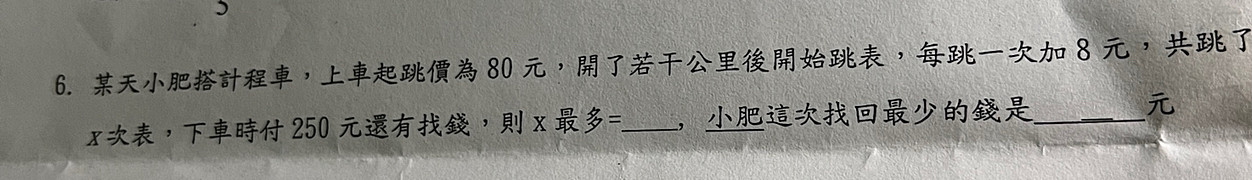 6. 某天小肥搭計程車，上車起跳價為 80 元，開了若干公里後開始跳表，每跳一次加 8 元，共跳了
x次表，下車時付 250 元還有找錢，則 x 最多=____，小肥這次找回最少的錢是________元